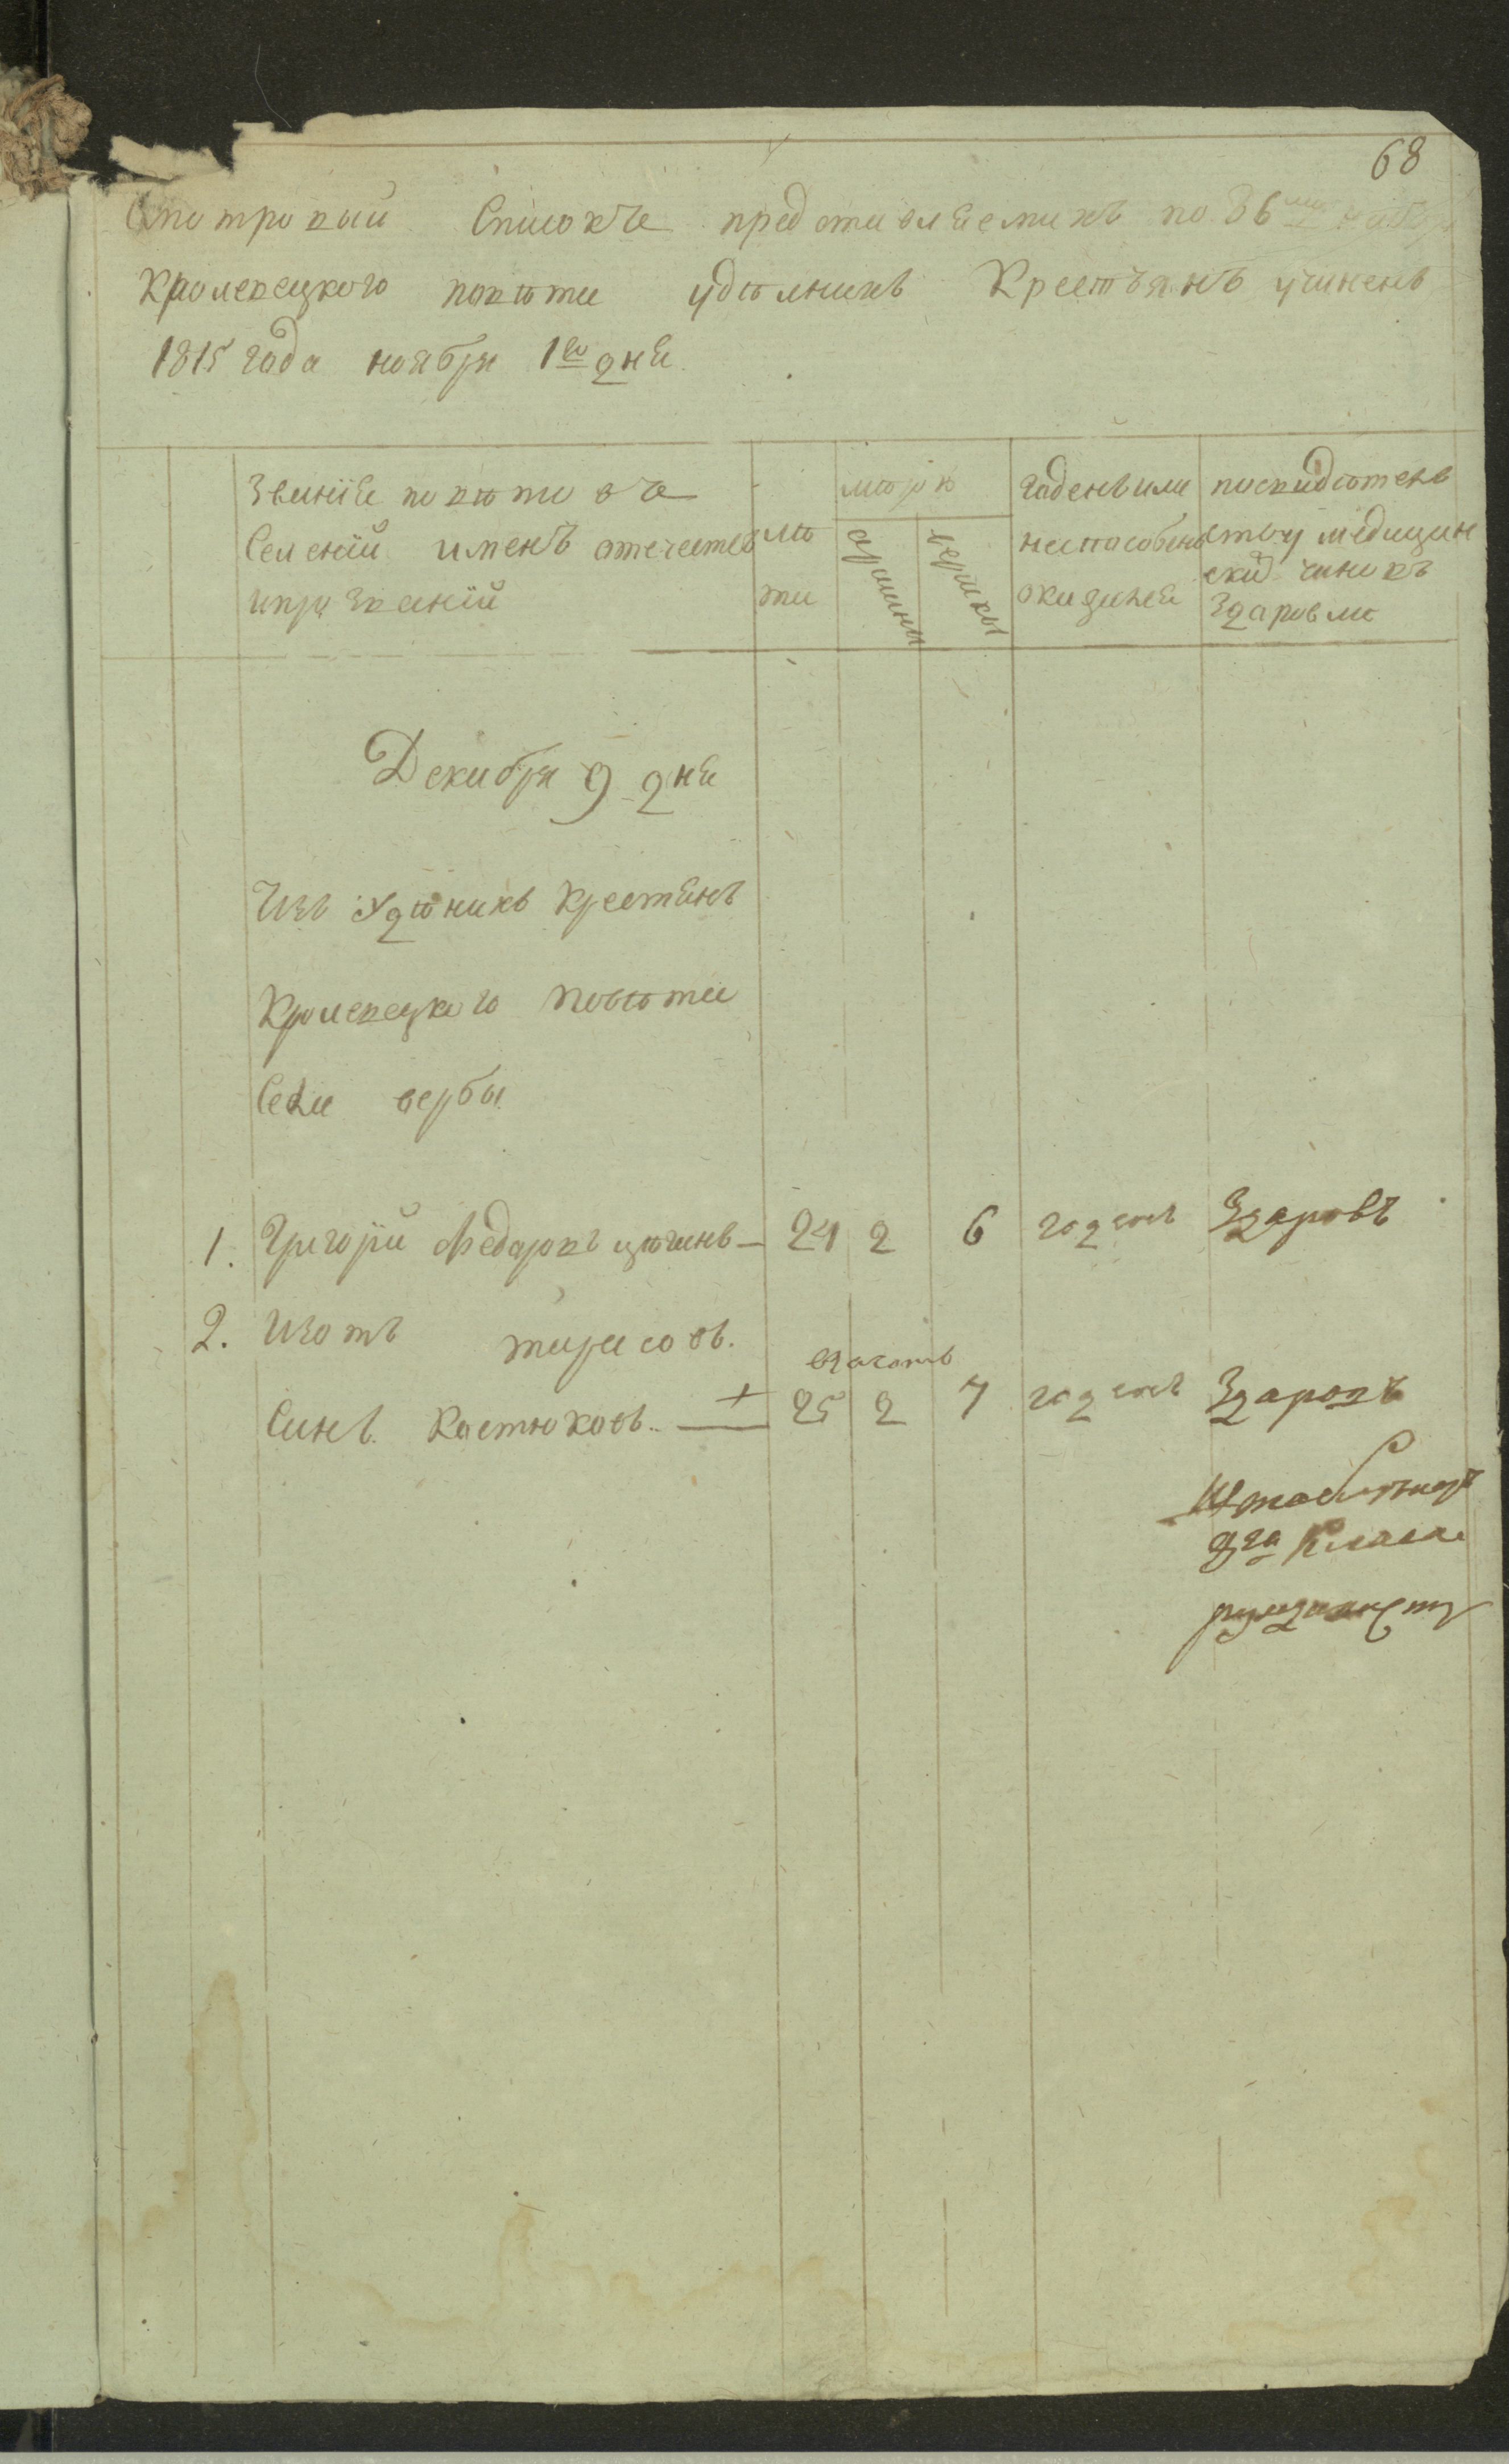 68
Смотровый Списокъ представляемихъ по 86му набору
Кролевецкого повѣта удѣлнихъ Крестьянъ учиненъ
1815 года ноября 1го дня
Званіе повѣтовъ
Селеній именъ отечествъ
ипрозваній
лѣ
та
мѣра
аршины
вершки
годенъ или
неспособенъ
окажется
посвидѣтель
ству медицин
ски чиновъ
Здаровли
Декабря 9 дня
Изъ Удѣлнихъ Крестянъ
Кролевецкого Повѣта
Села вербы
1. Григорій Федоровъ 24 2 6 годенъ Здаровъ
2. Изотъ тарасовъ.
Синъ Костюковъ 25 2 7 годенъ Здаровъ
Класа